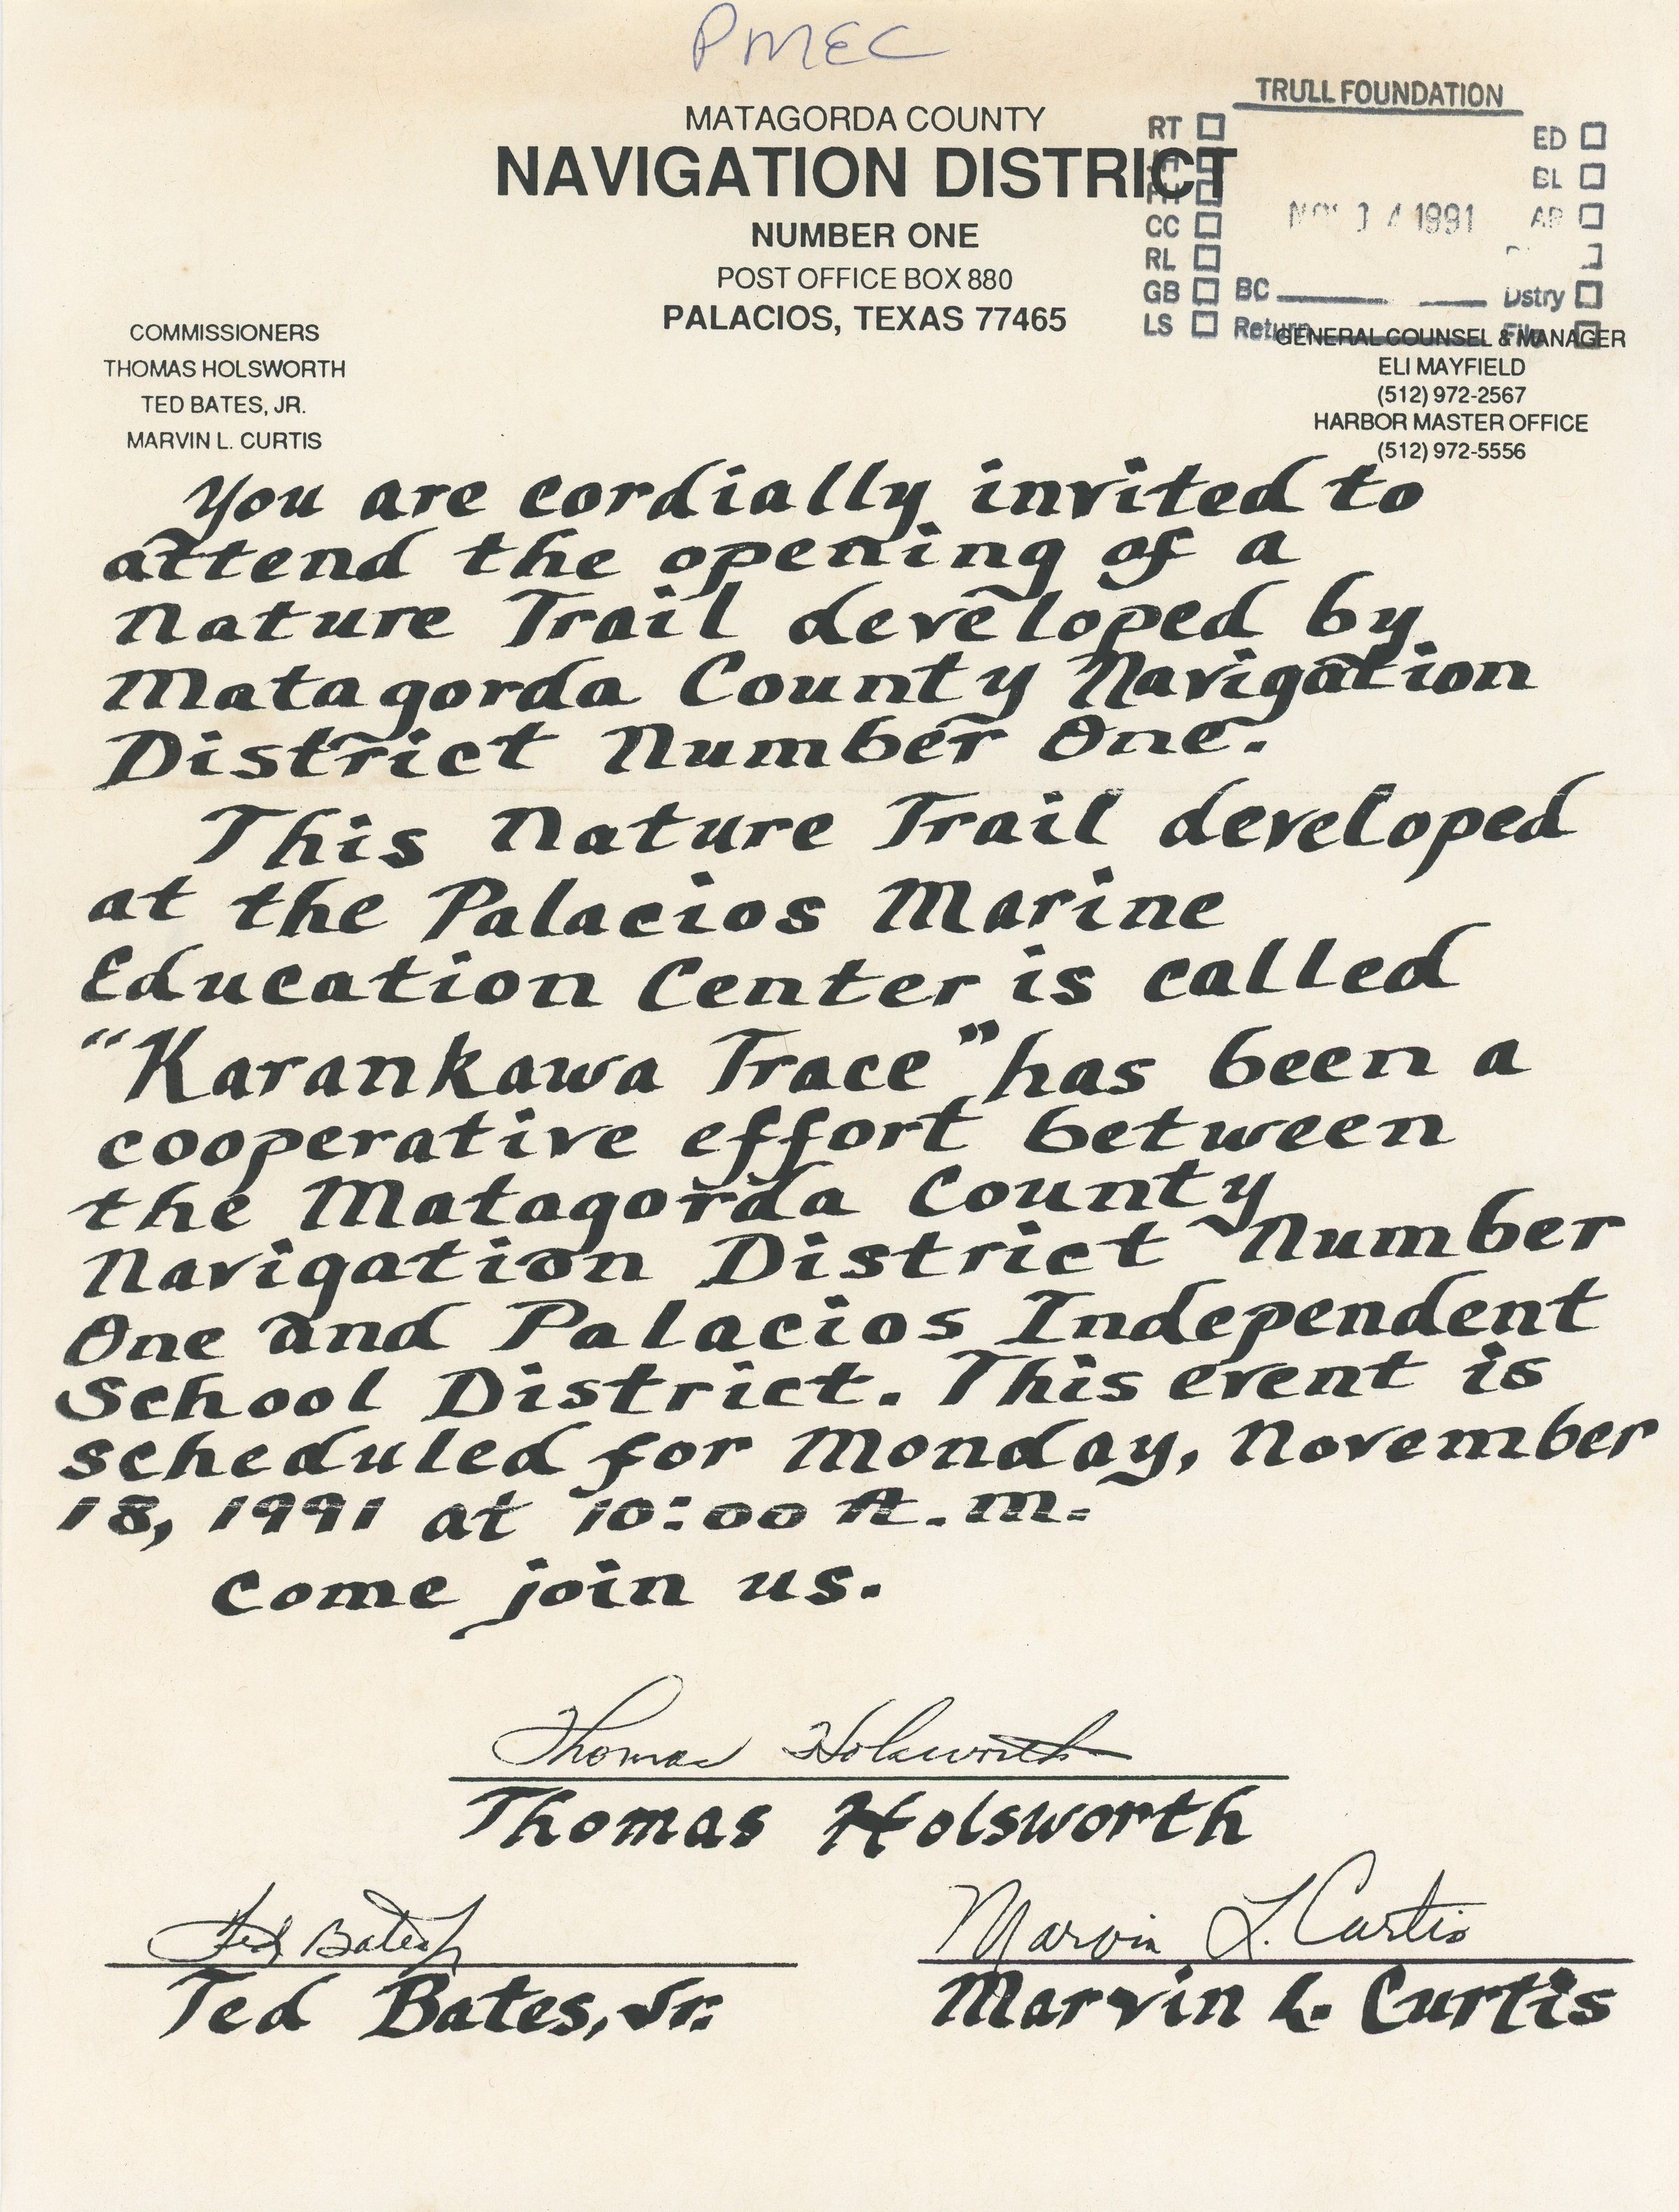 PMEC
MATAGORDA COUNTY
NAVIGATION DISTRICT
NUMBER ONE
POST OFFICE BOX 880
PALACIOS, TEXAS 77465
TRULL FOUNDATION
RT
CC
RL
GB
LS
ED
BL
1991
BC
Dstry
Return
File
COMMISSIONERS
THOMAS HOLSWORTH
TED BATES, JR.
MARVIN L. CURTIS
GENERAL COUNSEL & MANAGER
ELI MAYFIELD
(512) 972-2567
HARBOR MASTER OFFICE
(512) 972-5556
You are cordially invited to
attend the opening of a
Nature Trail developed by
Matagorda County Navigation
District Number One.
This Nature Trail developed
at the Palacios Marine
Education Center is called
“Karankawa Trace” has been a
cooperative effort between
the Matagorda County
Navigation District Number
One and Palacios Independent
School District. This event is
scheduled for Monday, November
18, 1991 at 10:00 A.M.
Come join us.
Thomas Holsworth
Thomas Holsworth
Ted Bates Jr
Ted Bates, Jr.
Marvin L. Curtis
Marvin L. Curtis